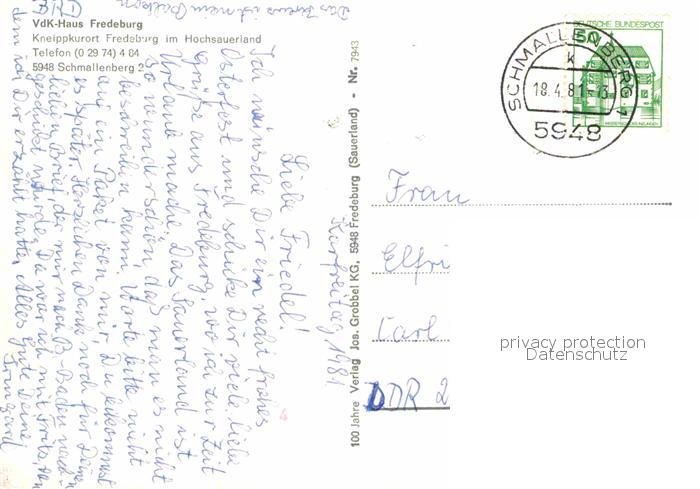 VdK-Haus Fredeburg
Kneippkurort Fredeburg im Hochsauerland
Telefon (0 29 74) 4 84
5948 Schmallenberg 2
Karfreitag, 1981
Liebe Friedel!
Ich wünsche Dir ein recht frohes
Osterfest und schicke Dir viele liebe
Grüße aus Fredeburg, wo ich zur Zeit
Urlaub mache. Das Sauerland ist
so wunderschön, daß man es nicht
beschreiben kann. Warte bitte nicht
auf ein Paket von mir, Du bekommst
es später. Herzlichen Dank noch für Deinen
lieben Brief, der mir nach B-Baden nach-
geschickt wurde. Da war ich mit Fritz, von
dem ich Dir erzählt hatte. Alles Gute Deine
Irmgard
Das ist mein Balkon
100 Jahre Verlag Jos. Grobbel KG, 5948 Fredeburg (Sauerland) - Nr. 7943
DEUTSCHE BUNDESPOST
50
SCHMALLENBERG 1
k
18.4.81-13
5948
Frau
Elfri
Carl
DDR 2
privacy protection
Datenschutz